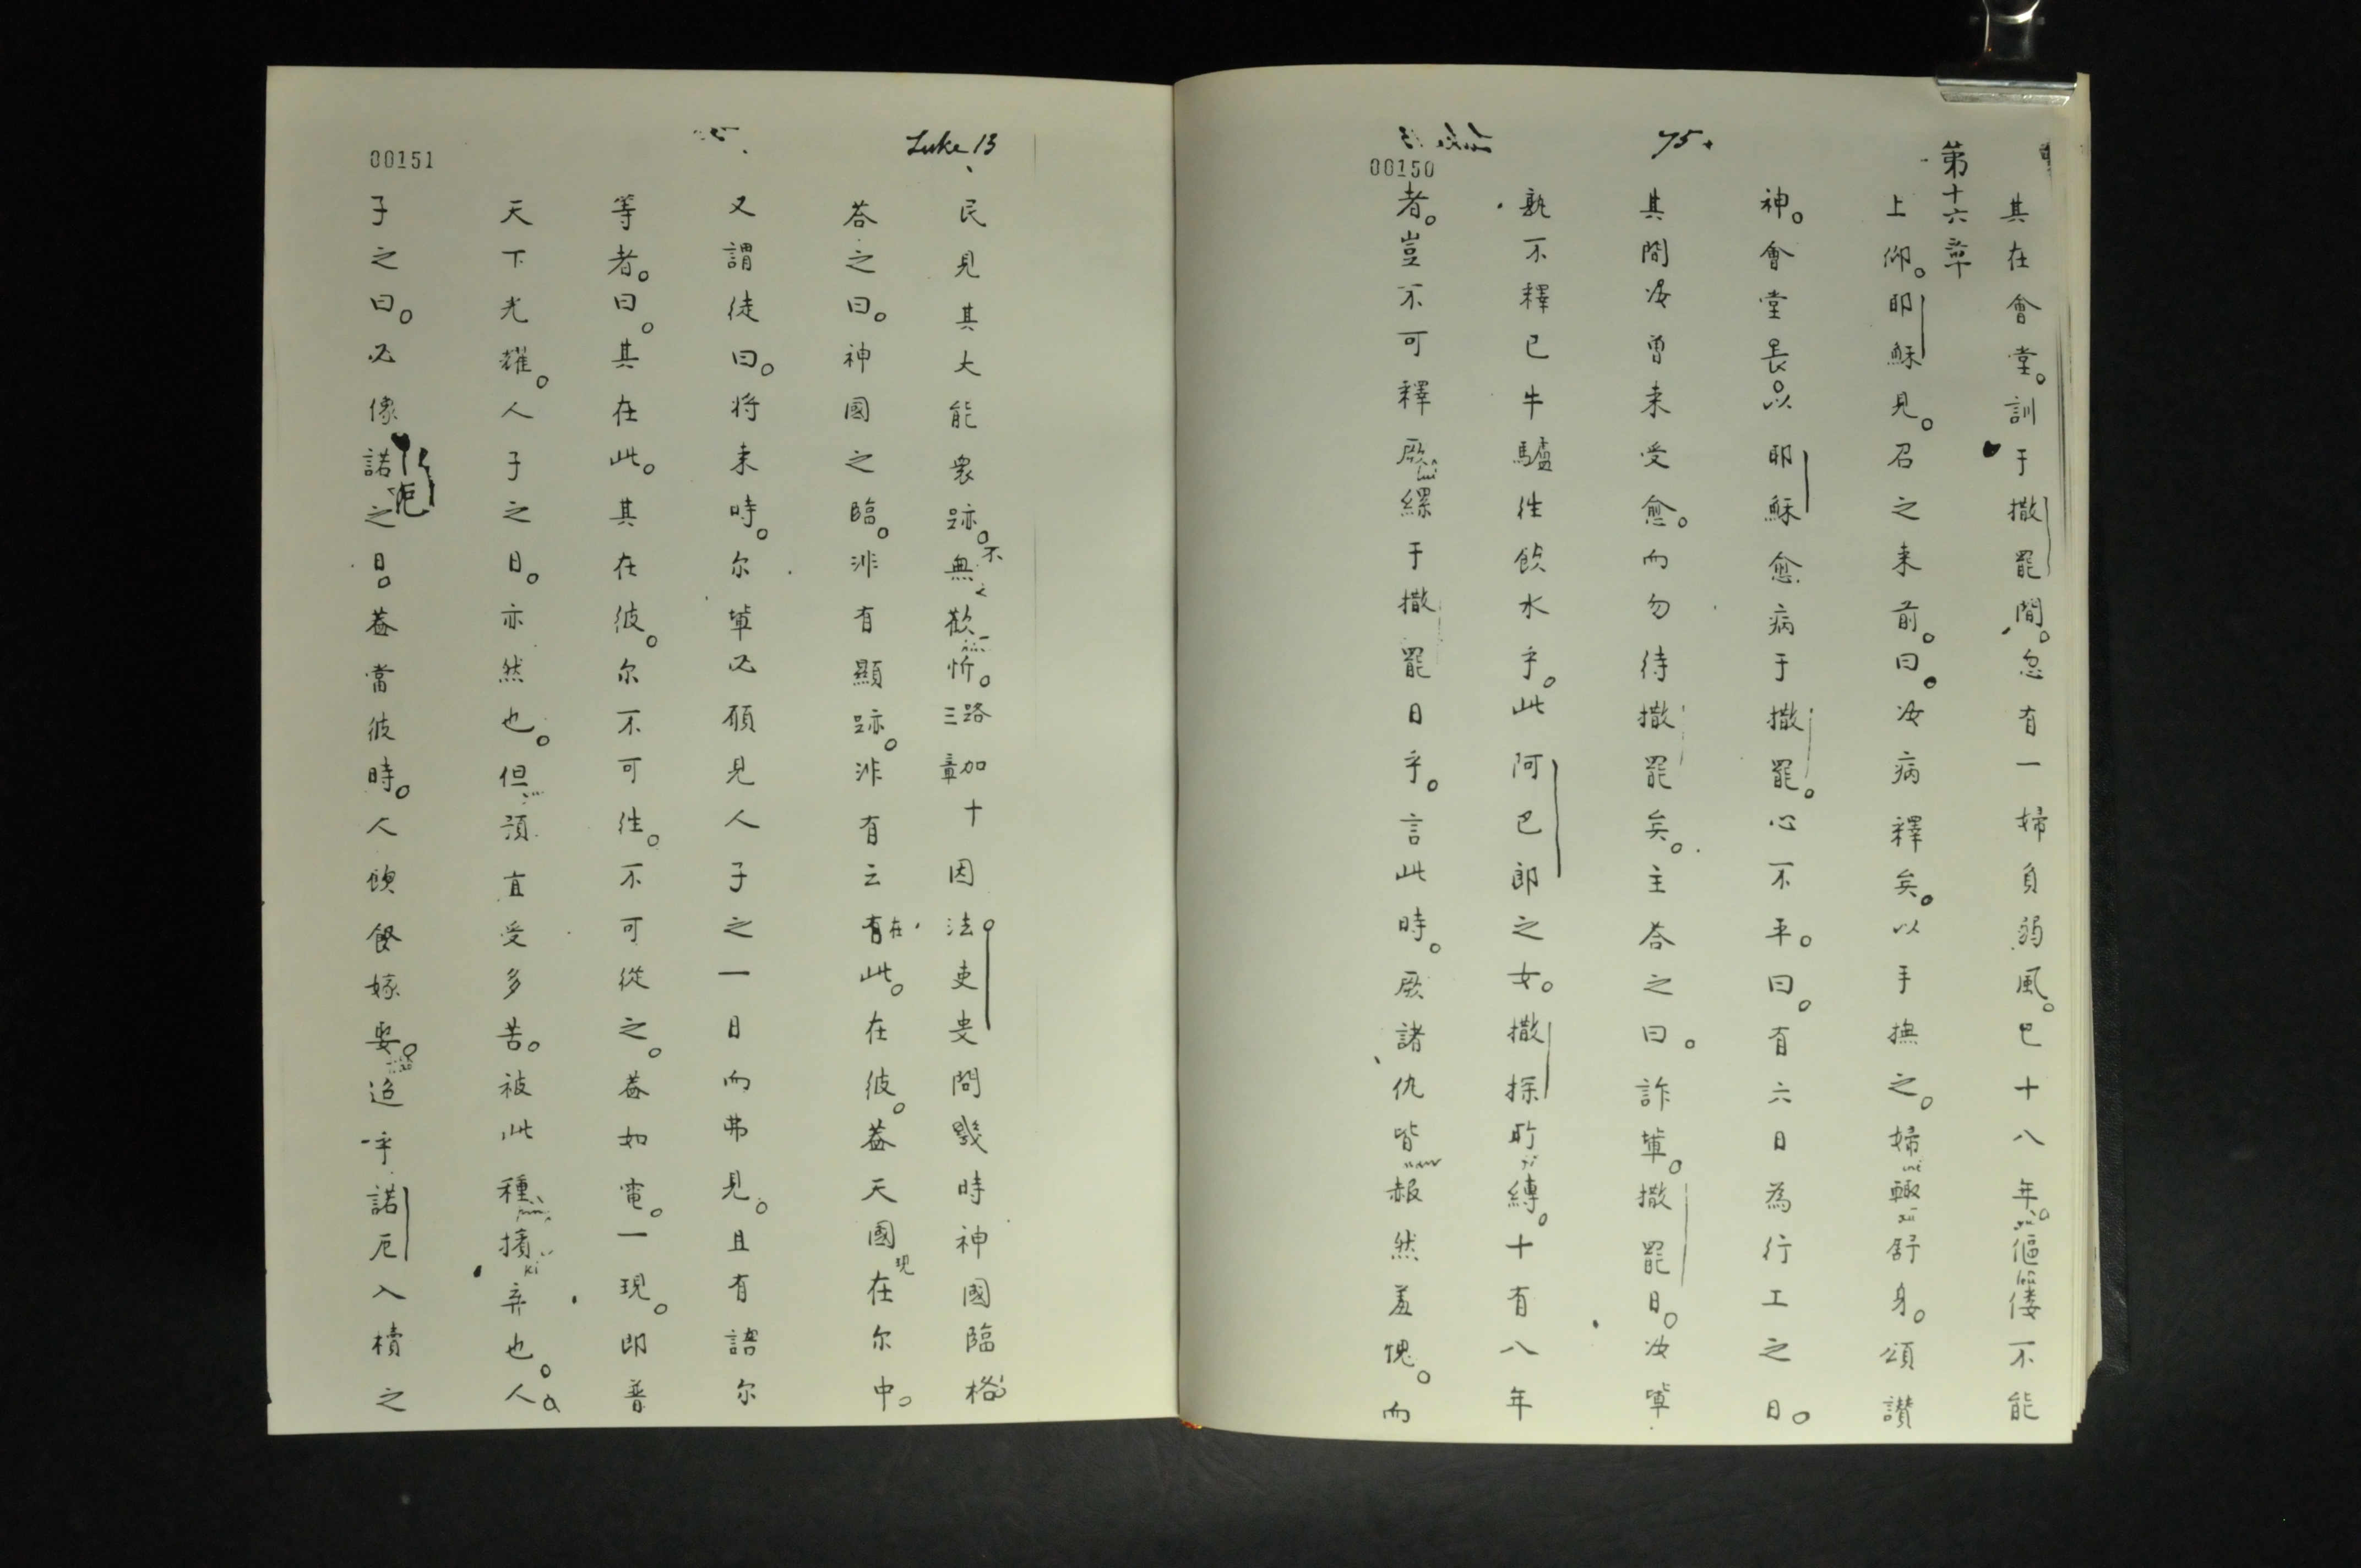 75.
00150
第十六章
其在會堂。訓于撒罷間。忽有一婦負弱風。已十八年。傴僂不能
上仰。耶穌見。召之来前。曰。汝病釋矣。以手撫之。婦輙舒身。頌讃
神。會堂長以耶穌愈病于撒罷。心不平。曰。有六日為行工之日。
其間汝曹来受愈。而勿待撒罷矣。主荅之曰。詐軰。撒罷日。汝軰
孰不釋已牛驢徃飲水乎。此阿巴郎之女。撒探所縛。十有八年
者。豈不可釋厥縲于撒罷日乎。言此時。厥諸仇皆赧然羞愧。而
Luke 13
00151
民見其大能衆跡。無不歡忻。路加十三章因法吏叓問幾時神國臨格
荅之曰。神國之臨。非有顯跡。非有云有在此。在彼。葢天國現在尔中。
又謂徒曰。将来時。尔軰必願見人子之一日而弗見。且有語尔
等者。曰。其在此。其在彼。尔不可徃。不可從之。葢如電。一現。即普
天下光耀。人子之日。亦然也。但預直受多苦。被此種擯弃也。人
子之日。必像諾厄之日。葢當彼時。人飲餐嫁娶。迨乎諾厄入櫝之